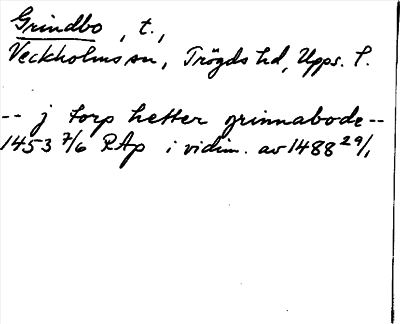 Grindbo, t.,
Veckholms sn, Trögds hd, Upps. l.
-- j torp hetter grinnabode --
1453 7/6 RAp i vidim. av 1488 29/1